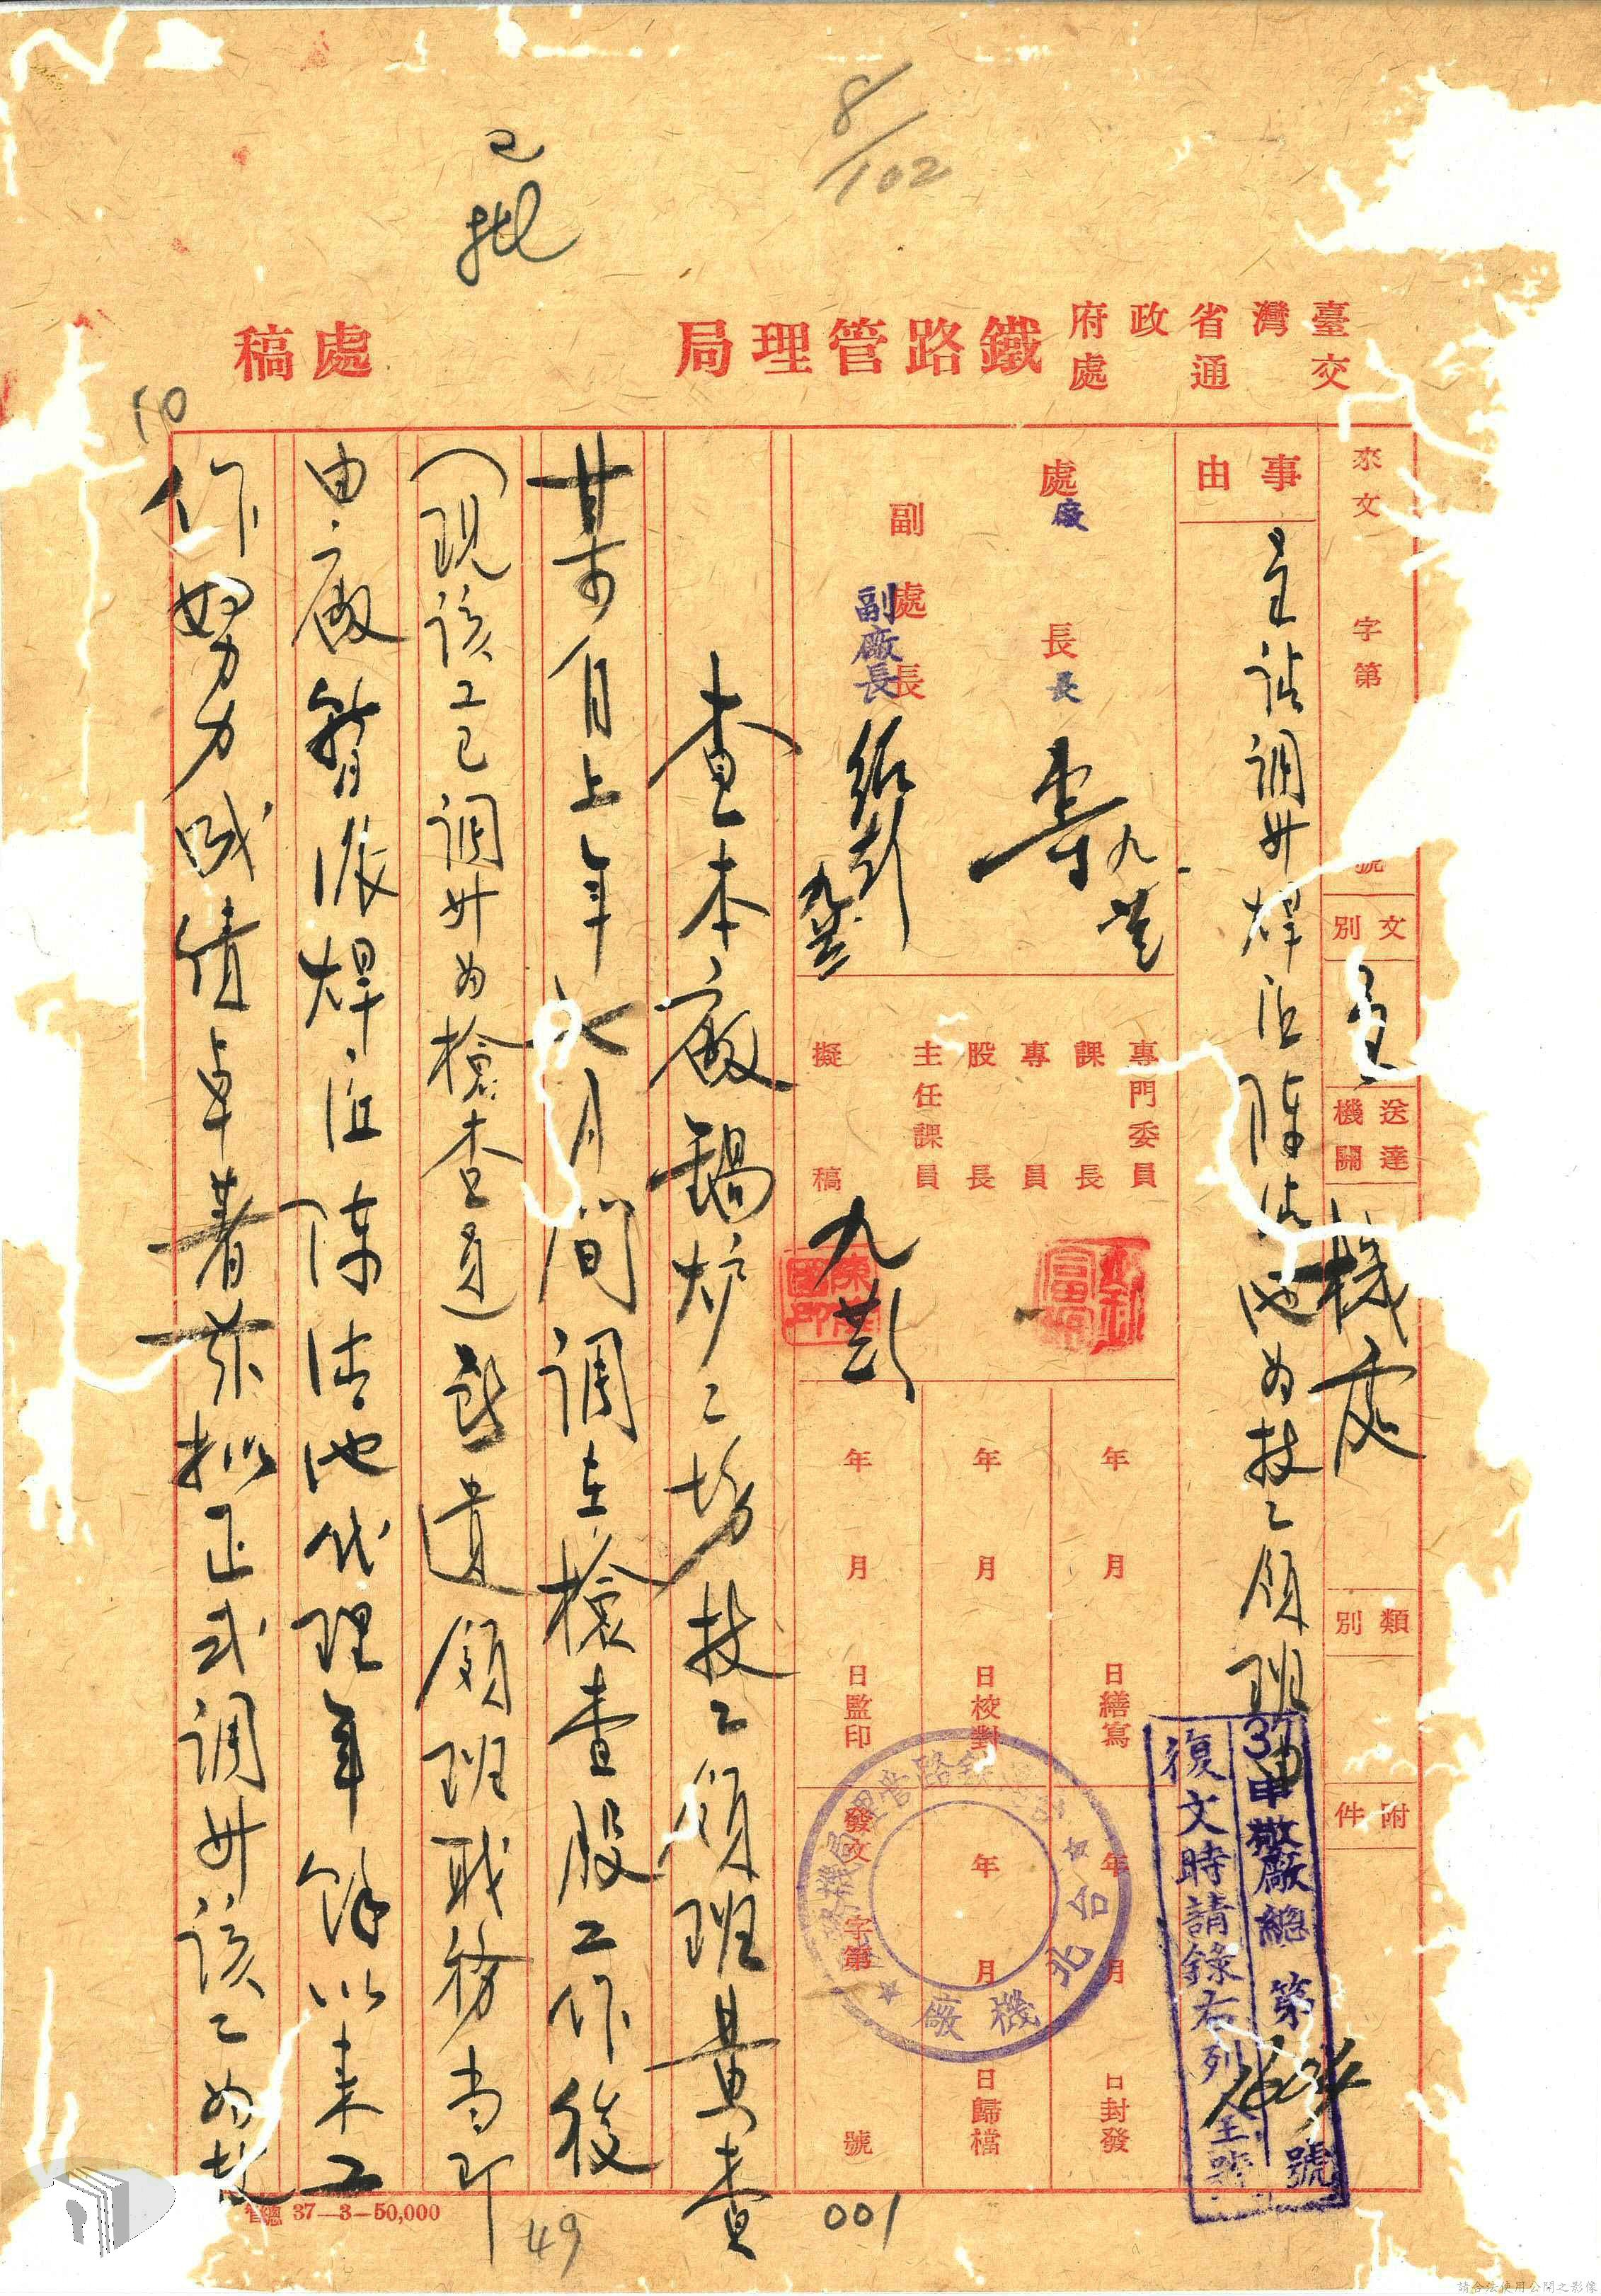 8/102
已批
臺灣省政府
交通處
鐵路管理局
處稿
10
來文 字第 號
文別
呈
送達機關
機處
類別
附件
事由
呈請調升焊工陳清池為技工領班由
處長
廠長
副處長
副廠長
九
專門委員
課長
專員
股長
主任課員
擬稿
年 月 日繕寫
年 月 日校對
年 月 日監印
年 月 日封發
年 月 日歸檔
發文 字第 號
台北機廠
37申 廠總 第 號
復文時請錄右列全號
查本廠鍋炉工場技工領班黃查
某前自上年 月間調在檢查股工作後
(現該工已調升為檢查員)所遺領班職務当即
由廠暫派焊工陳清池代理年餘以来工
作努力成績卓著茲拟正式調升該工為技
管總 37—3—50,000
49
001
請合法使用公開之影像